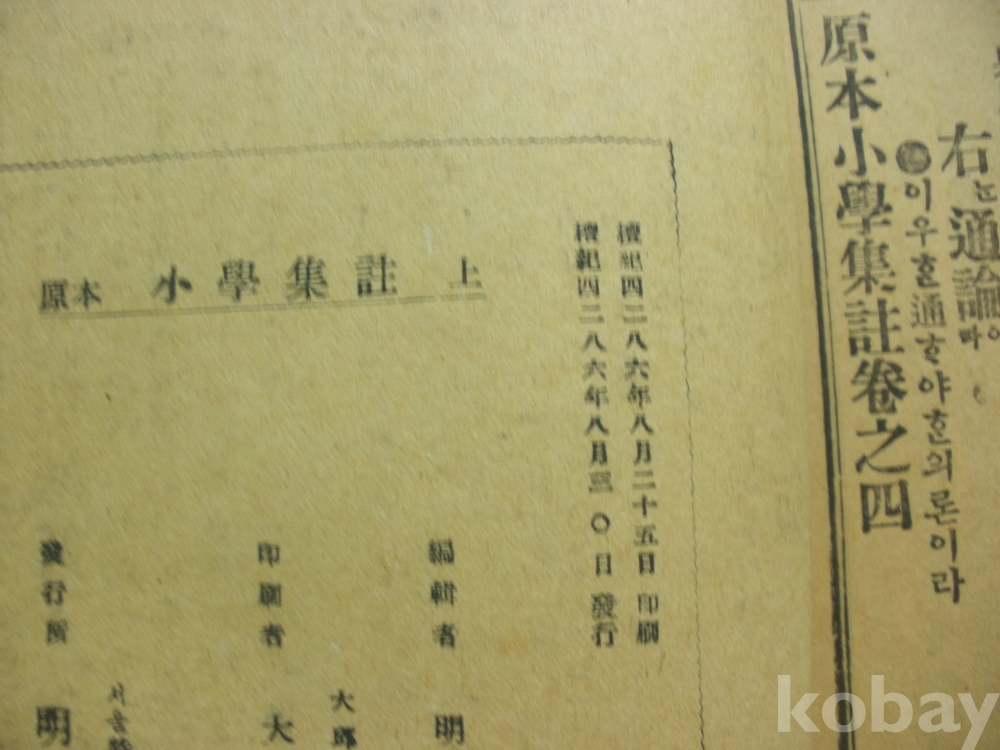 右는通論이라
이우흔通하야혼의론이라
原本小學集註卷之四
檀紀四二八六年八月二十五日 印刷
檀紀四二八六年八月三〇日 發行
原本 小學集註 上
編輯者 明
大邱
印刷者 大
서울特
發行所 明
kobay